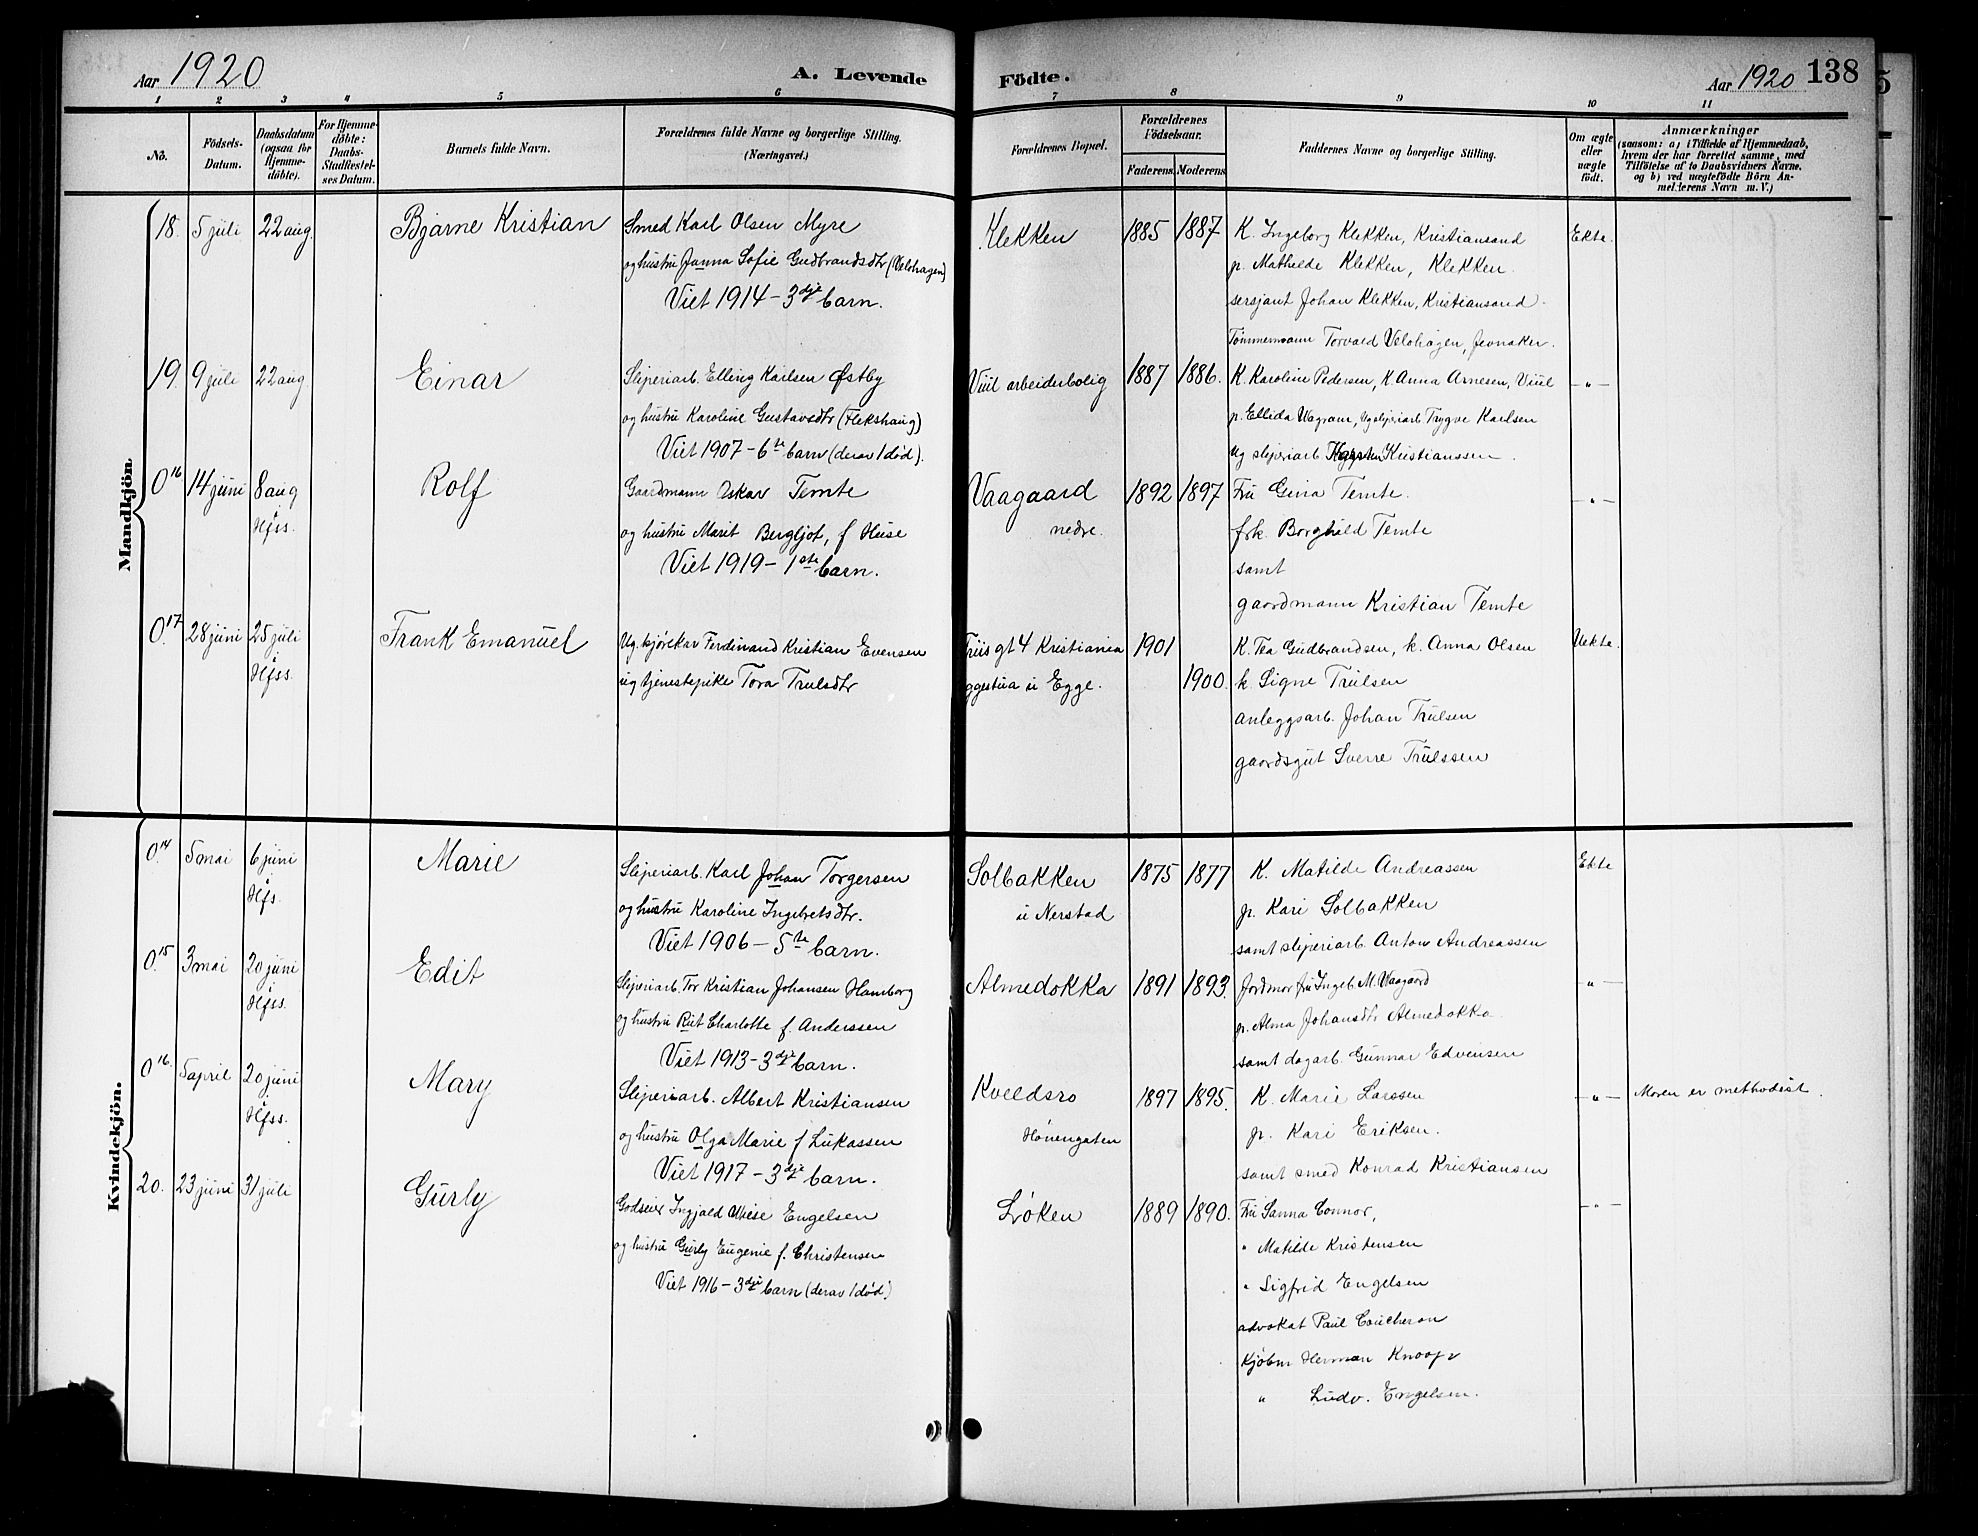 Aar 1920
A. Levende
Födte.
Aar 1920
138
1 2 3 4 5 6 7 8 9 10 11
No.
Födsels-Datum.
Daabsdatum (ogsaa for Hjemme-döbte).
For Hjemme-döbte: Daabs-Stadfæstel-ses Datum.
Barnets fulde Navn.
Forældrenes fulde Navne og borgerlige Stilling. (Næringsvei.)
Forældrenes Bopæl.
Forældrenes Födselsaar.
Faderens Moderens
Faddernes Navne og borgerlige Stilling.
Om ægte eller uægte födt.
Anmærkninger
(saasom: a) i Tilfælde af Hjemmedaab,
hvem der har forrettet samme, med
Tilföielse af to Daabsvidners Navne,
og b) ved uægtefödte Börn An-
melderens Navn m. V.)
Mandkjön.
18. 5 juli 22 aug. Bjarne Kristian
Smed Karl Olsen Myre
og hustru Janna Sofie Gudbrandsdtr (Velohagen)
Viet 1914 – 3dje barn.
Klekken 1885 1887
K. Ingeborg Klekken, Kristiansand
p. Mathilde Klekken, Klekken.
sersjant Johan Klekken, Kristiansand.
Tömmermann Torvald Velohagen, Jevnaker.
Ekte.
19. 9 juli 22 aug Einar
Sliperiarb. Elling Karlsen Østby
og hustru Karoline Gustavsdtr (Flekshaug)
Viet 1907 – 6te barn (derav 1 død).
Viul arbeiderbolig 1887 1886.
K. Karoline Pedersen, K. Anna Arnesen, Viul
p. Ellida Wegram, Ug sliperiarb Trygve Karlsen
Ug sliperiarb Kristianssen.
– „ –
0.16 14 juni 8 aug Hfss. Rolf
Gaardmann Oskar Temte
og hustru Marit Bergljot, f Huse
Viet 1919 – 1ste barn.
Vaagaard nedre. 1892 1897
Fru Gina Temte.
frk. Borghild Temte
samt
gaardmann Kristian Temte
– „ –
0.17 28 juni 25 juli Hfss. Frank Emanuel
Ug. kjørekar Ferdinand Kristian Evensen
ug tjenestepike Tora Trulsdtr
Friis gt 4 Kristiania 1901
ggestua u Egge. 1900.
K. Tea Gudbrandsen, k. Anna Olsen
k. Signe Trulsen
anleggsarb. Johan Trulsen
gaardsgut Sverre Trulssen
Uekte.
Kvindekjön.
0.14 5 mai 6 juni Hfs. Marie
Sliperiarb. Karl Johan Torgersen
og hustru Karoline Ingebretsdtr.
Viet 1906 – 5te barn.
Solbakken u Nerstad 1875 1877
K. Matilde Andreassen
p. Kari Solbakken
samt sliperiarb. Anton Andreassen
Ekte
0.15 3 mai 20 juni Hfss. Edit
Sliperiarb. Tor Kristian Johansen Hamborg
og hustru Rut Charlotte f. Anderssen
Viet 1913 – 3dje barn.
Almedokka 1891 1893.
Jordmor fru Ingeb. M. Vaagaard
p. Alma Johansdtr Almedokka
samt dagarb. Gunnar Edvensen
– „ –
0.16. 5 april 20 juni Hfss. Mary
Sliperiarb. Albert Kristiansen
og hustru Olga Marie f Lukassen
Viet 1917 – 3dje barn.
Kveldsro Hønengaten 1897 1895.
K. Marie Larssen
p. Kari Eriksen.
samt smed Konrad Kristiansen
– „ –
Moren er methodist.
20. 23 juni 31 juli Gurly
Godseier Ingjald Wiese Engelsen
og hustru Gurly Eugenie f. Christensen
Viet 1916 – 3dje barn (derav 1 død)
Løken 1889 1890.
Fru Sanna Connor,
" Matilde Kristensen
" Sigfrid Engelsen
advokat Paul Coucheron
Kjøbm Herman Knoop
" Ludv. Engelsen.
– „ –